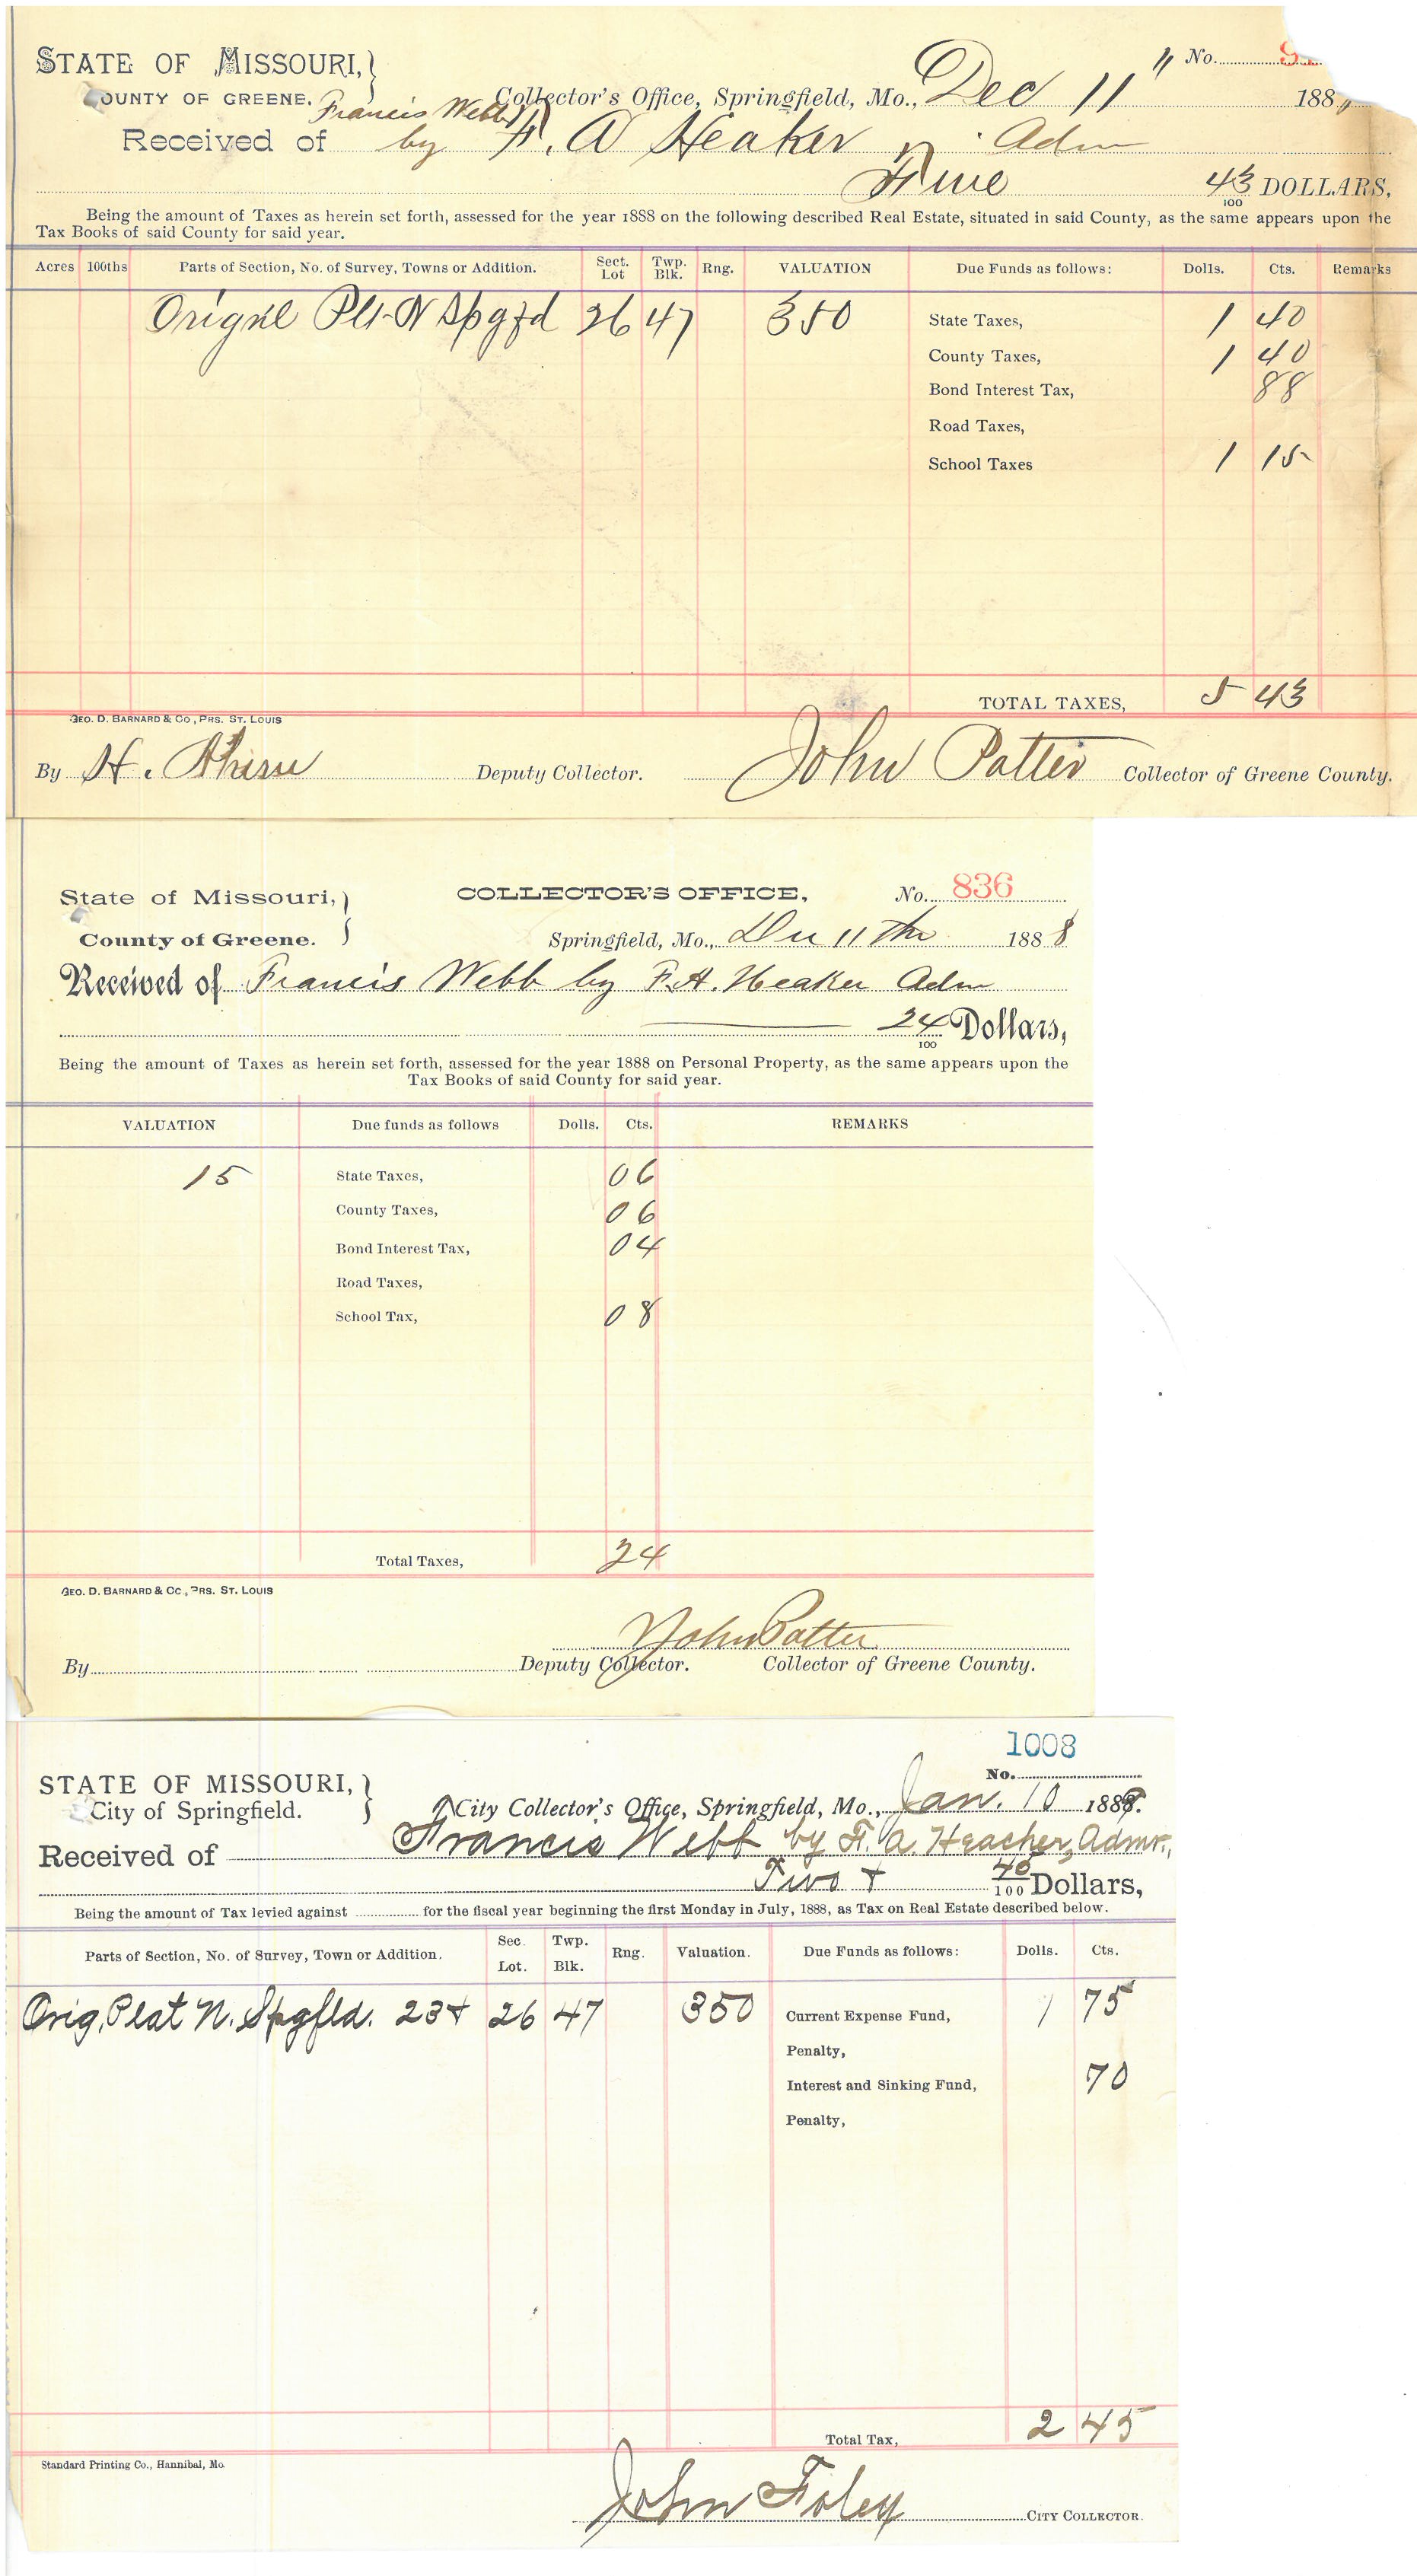 STATE OF MISSOURI, } Collector's Office, Springfield, Mo., Dec 11 " No.
COUNTY OF GREENE. 188
Francis Webb
Received of by F. A Heaker Adm
Five 43/100 DOLLARS,
Being the amount of Taxes as herein set forth, assessed for the year 1888 on the following described Real Estate, situated in said County, as the same appears upon the
Tax Books of said County for said year.
Acres 100ths Parts of Section, No. of Survey, Towns or Addition. Sect. Lot Twp. Blk. Rng. VALUATION Due Funds as follows: Dolls. Cts. Remarks
Orignl Plt N Spgfd 26 47 350 State Taxes, 1 40
County Taxes, 1 40
Bond Interest Tax, 88
Road Taxes,
School Taxes 1 15
TOTAL TAXES, 5 43
GEO. D. BARNARD & CO., PRS. ST. LOUIS
By H. Deputy Collector. John Patter Collector of Greene County.
State of Missouri, } COLLECTOR'S OFFICE, No. 836
County of Greene. Springfield, Mo., Dec 11th 1888
Received of Francis Webb by F. A. Heaker Adm
24/100 Dollars,
Being the amount of Taxes as herein set forth, assessed for the year 1888 on Personal Property, as the same appears upon the
Tax Books of said County for said year.
VALUATION Due funds as follows Dolls. Cts. REMARKS
15 State Taxes, 06
County Taxes, 06
Bond Interest Tax, 04
Road Taxes,
School Tax, 08
Total Taxes, 24
GEO. D. BARNARD & CO., PRS. ST. LOUIS
John Patter
By Deputy Collector. Collector of Greene County.
1008
No.
STATE OF MISSOURI, }
City of Springfield. City Collector's Office, Springfield, Mo., Jan. 10 1889.
Received of Francis Webb by F. A. Heacher, Admr.,
Two + 45/100 Dollars,
Being the amount of Tax levied against for the fiscal year beginning the first Monday in July, 1888, as Tax on Real Estate described below.
Parts of Section, No. of Survey, Town or Addition. Sec. Lot. Twp. Blk. Rng. Valuation. Due Funds as follows: Dolls. Cts.
Orig. Plat N. Spgfld. 23+ 26 47 350 Current Expense Fund, 1 75
Penalty,
Interest and Sinking Fund, 70
Penalty,
Total Tax, 2 45
Standard Printing Co., Hannibal, Mo.
John Foley CITY COLLECTOR.